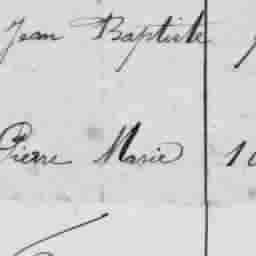 Jean Baptiste
Pierre Marie 1